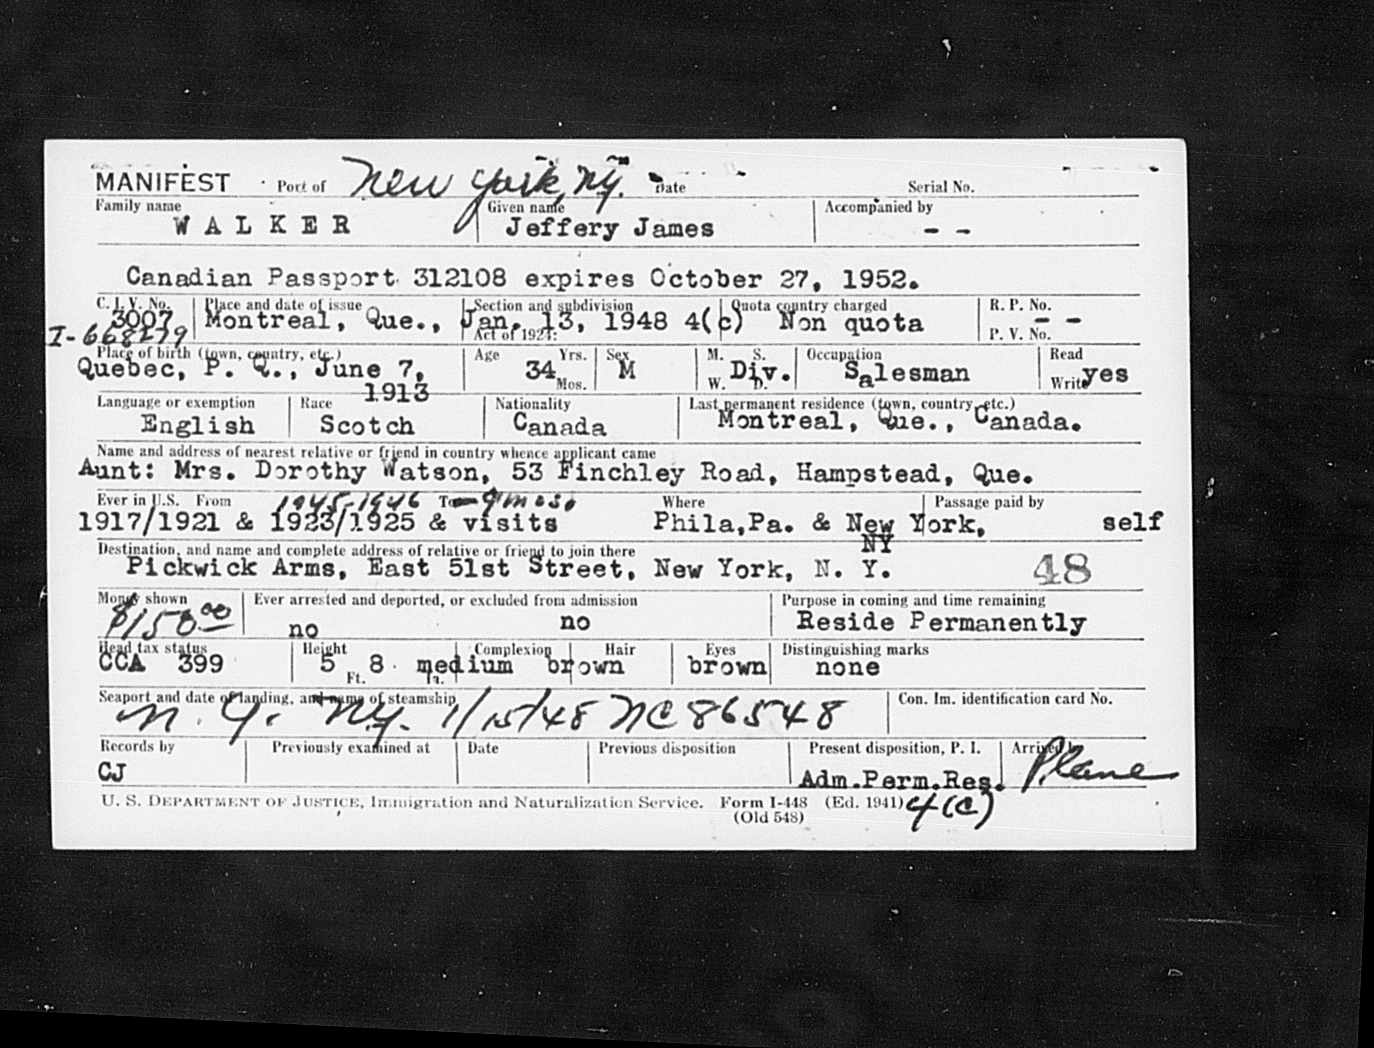 MANIFEST Port of New York, NY. Date Serial No.
Family name Given name Accompanied by
W A L K E R Jeffery James - -
Canadian Passport 312108 expires October 27, 1952.
C. I. V. No. Place and date of issue Section and subdivision Quota country charged R. P. No.
3007 Montreal, Que., Jan. 13, 1948 4(c) Non quota - -
I-668279 Act of 1924: P. V. No.
Place of birth (town, country, etc.) Age Yrs. Sex M. S. Occupation Read
Quebec, P. Q., June 7, 34 M Div. Salesman yes
1913 Mos. W. D. Write
Language or exemption Race Nationality Last permanent residence (town, country, etc.)
English Scotch Canada Montreal, Que., Canada.
Name and address of nearest relative or friend in country whence applicant came
Aunt: Mrs. Dorothy Watson, 53 Finchley Road, Hampstead, Que.
Ever in U.S. From 1945-1946 To - 9 mos. Where Passage paid by
1917/1921 & 1923/1925 & visits Phila,Pa. & New York, self
NY
Destination, and name and complete address of relative or friend to join there
Pickwick Arms, East 51st Street, New York, N. Y. 48
Money shown Ever arrested and deported, or excluded from admission Purpose in coming and time remaining
$150.00 no no Reside Permanently
Head tax status Height Complexion Hair Eyes Distinguishing marks
CCA 399 5 8 medium brown brown none
Ft. In.
Seaport and date of landing, and name of steamship Con. Im. identification card No.
N. Y. NY. 1/15/48 NC86548
Records by Previously examined at Date Previous disposition Present disposition, P. I. Arrived by
CJ Adm.Perm.Res. Plane
U. S. DEPARTMENT OF JUSTICE, Immigration and Naturalization Service. Form I-448 (Ed. 1941) 4(c)
(Old 548)